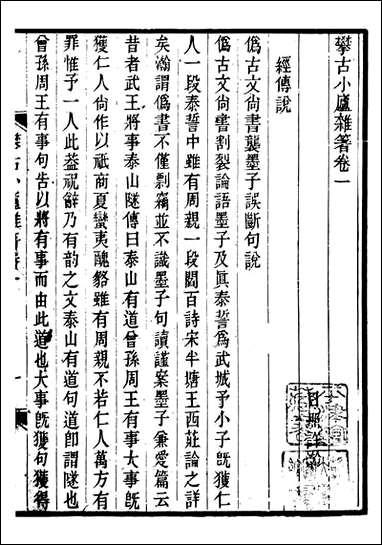 攀古小廬雜著卷一
經傳說
僞古文尙書襲墨子誤斷句說
僞古文尙書割裂論語墨子及眞泰誓爲武城予小子旣獲仁
人一段泰誓中雖有周親一段閻百詩宋半塘王西莊論之詳
矣瀚謂僞書不僅剽竊並不識墨子句讀謹案墨子兼愛篇云
昔者武王將事泰山隧傳曰泰山有道曾孫周王有事大事旣
獲仁人尙作以祗商夏蠻夷醜貉雖有周親不若仁人萬方有
罪惟予一人此葢祝辭乃有韵之文泰山有道句道卽謂隧也
曾孫周王有事句告以將有事而由此道也大事旣獲句獲得
攀古小廬雜著卷一